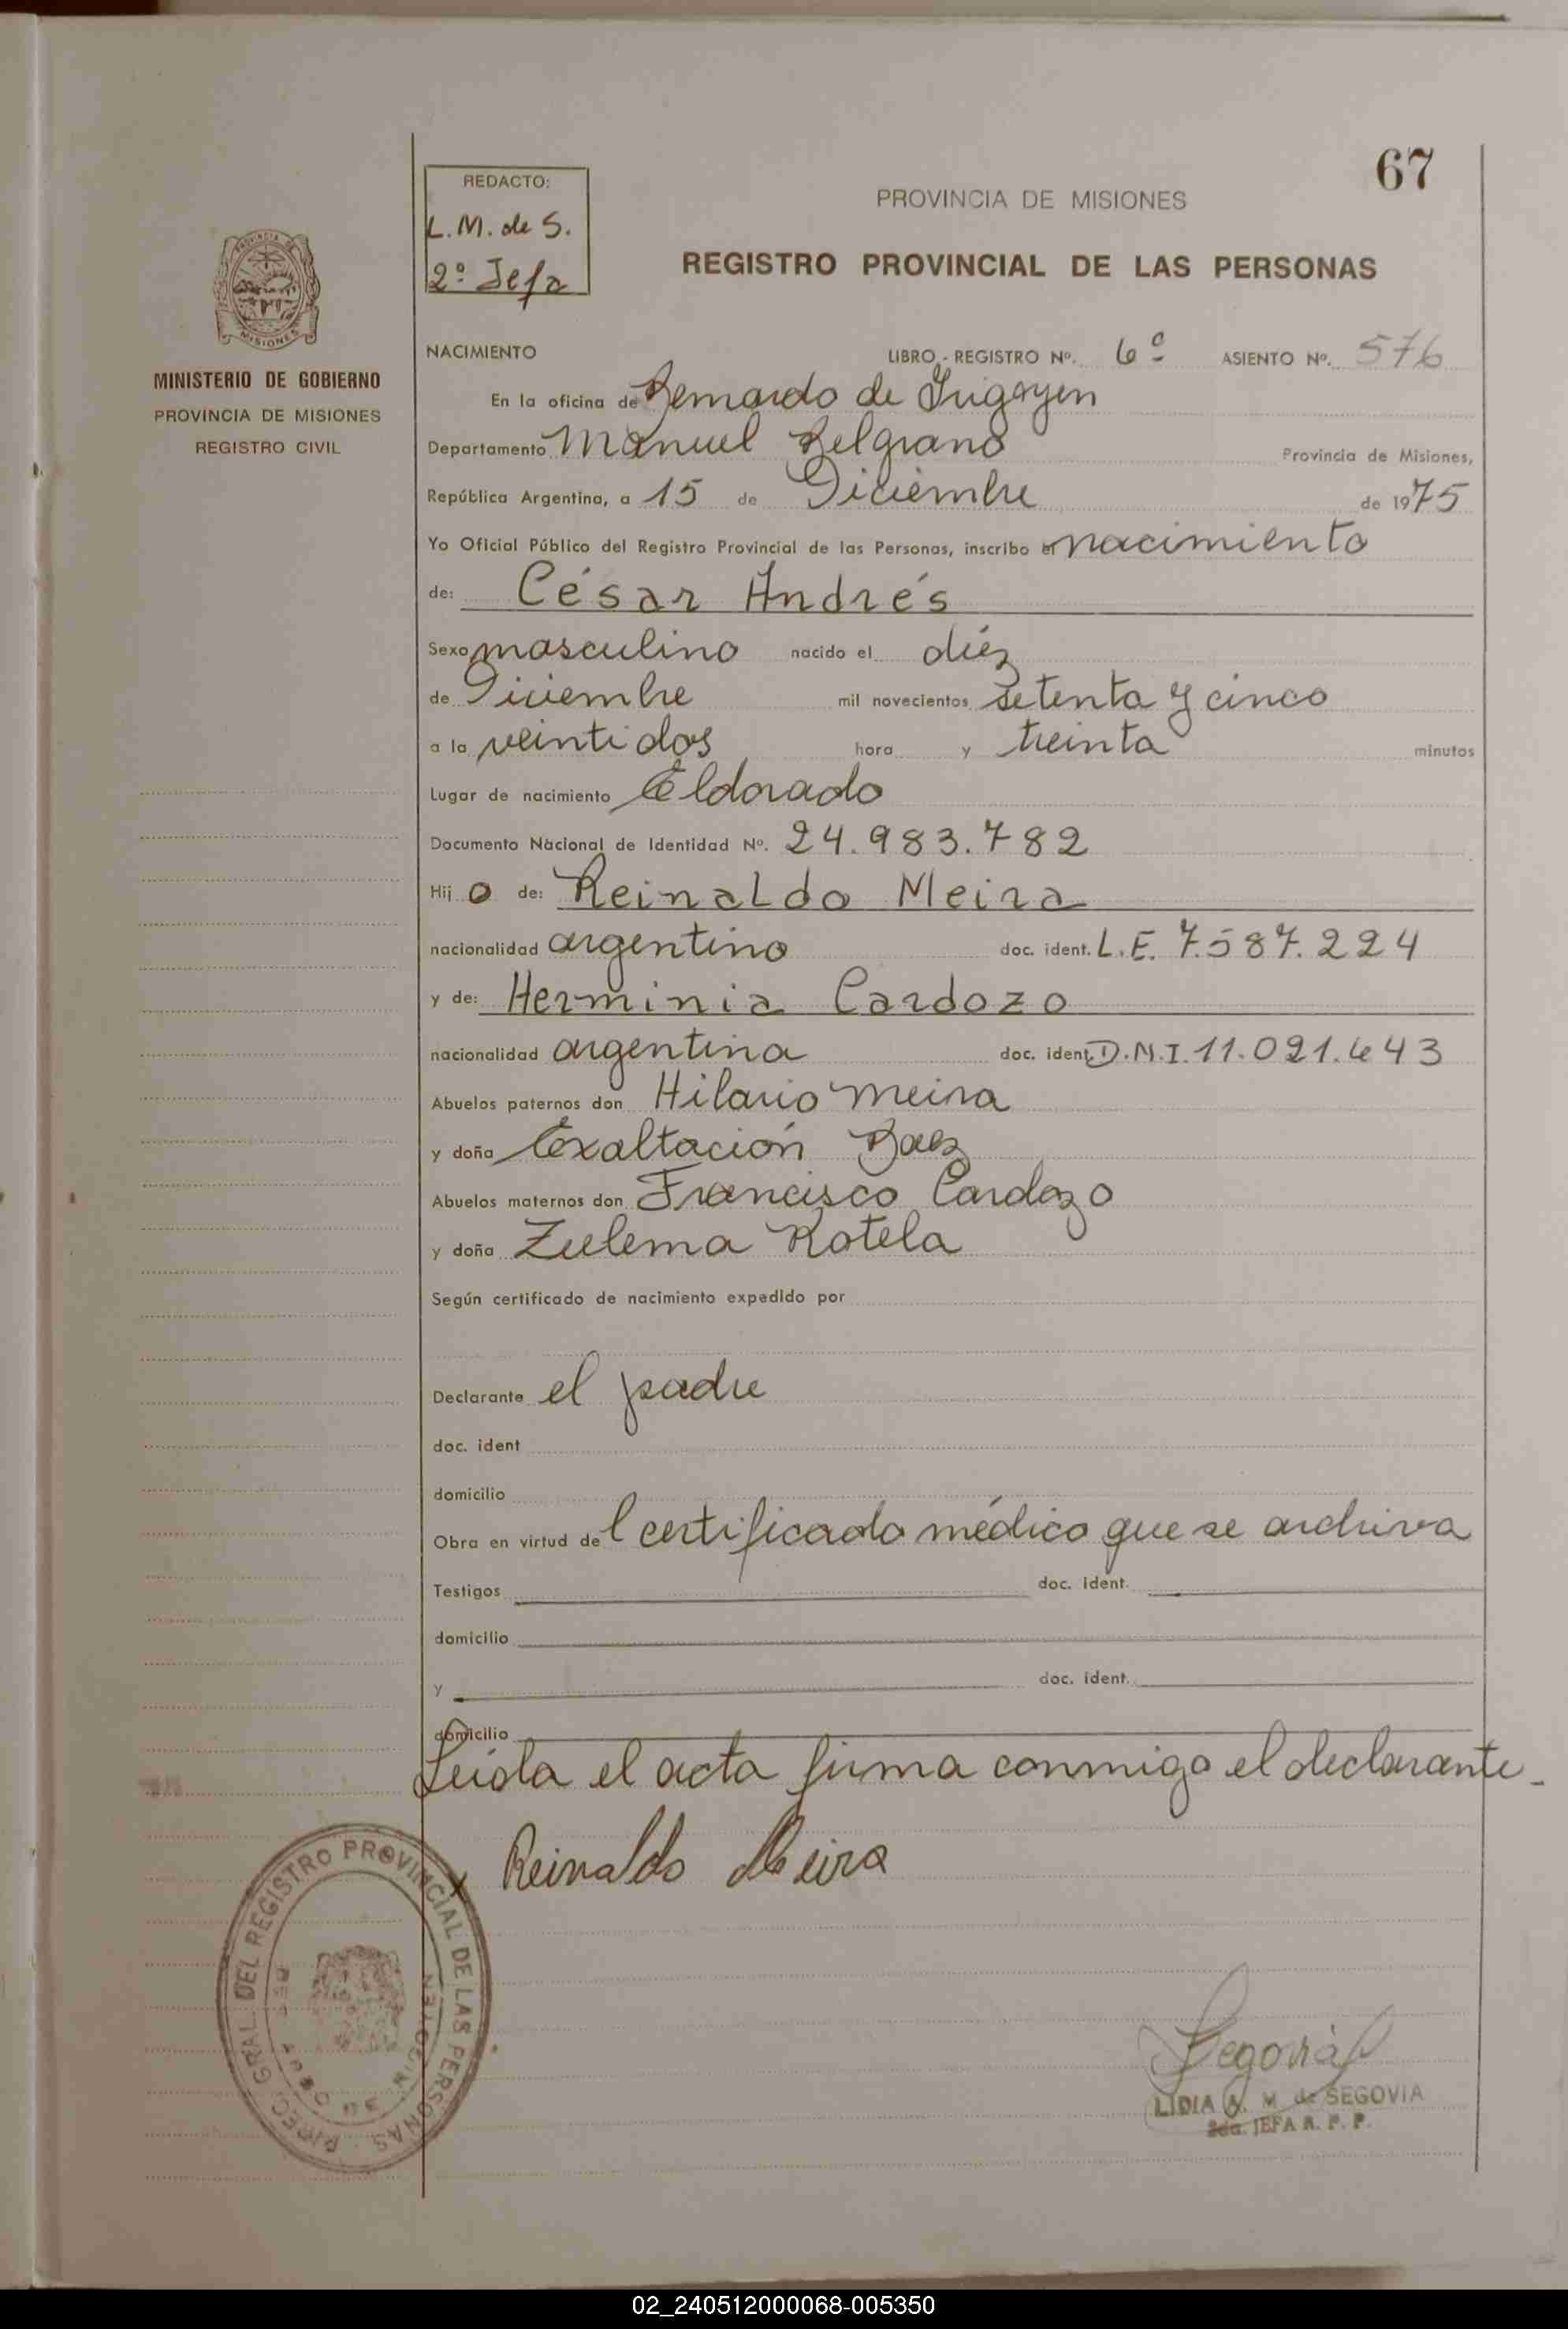 67
REDACTO:
L.M. de S.
2º Jefa
PROVINCIA DE MISIONES
REGISTRO PROVINCIAL DE LAS PERSONAS
PROVINCIA DE
MISIONES
MINISTERIO DE GOBIERNO
PROVINCIA DE MISIONES
REGISTRO CIVIL
NACIMIENTO LIBRO - REGISTRO Nº. 6º ASIENTO Nº. 576
En la oficina de Bernardo de Irigoyen
Departamento Manuel Belgrano Provincia de Misiones,
República Argentina, a 15 de Diciembre de 1975
Yo Oficial Público del Registro Provincial de las Personas, inscribo el nacimiento
de: César Andrés
Sexo masculino nacido el diéz
de Diciembre mil novecientos setenta y cinco
a la veintidos hora y treinta minutos
Lugar de nacimiento Eldorado
Documento Nacional de Identidad Nº. 24.983.782
Hij o de: Reinaldo Meira
nacionalidad argentino doc. ident. L.E. 7.587.224
y de: Herminia Cardozo
nacionalidad argentina doc. ident. D.N.I. 11.021.643
Abuelos paternos don Hilario Meira
y doña Exaltación Baez
Abuelos maternos don Francisco Cardozo
y doña Zulema Rotela
Según certificado de nacimiento expedido por
Declarante el padre
doc. ident
domicilio
Obra en virtud del certificado médico que se archiva
Testigos doc. ident.
domicilio
y doc. ident.
domicilio
Leida el acta firma conmigo el declarante.
x Reinaldo Meira
DIREC. GRAL. DEL REGISTRO PROVINCIAL DE LAS PERSONAS
DE IRIGOYEN
Segovia
LIDIA A. M. de SEGOVIA
2da. JEFA R. P. P.
02_240512000068-005350